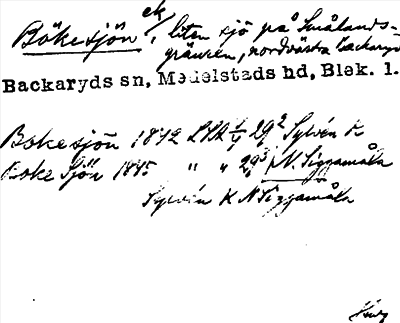 Bökesjön ek, liten sjö på Smålands-
gränsen, nordvästra Backaryd
Backaryds sn, Medelstads hd, Blek. l.
Bökesjön 1842 LSA 29² Sylvén K
Böke Sjön 1845 " " 29³ N. Siggamåla
Sylvén K N Siggamåla